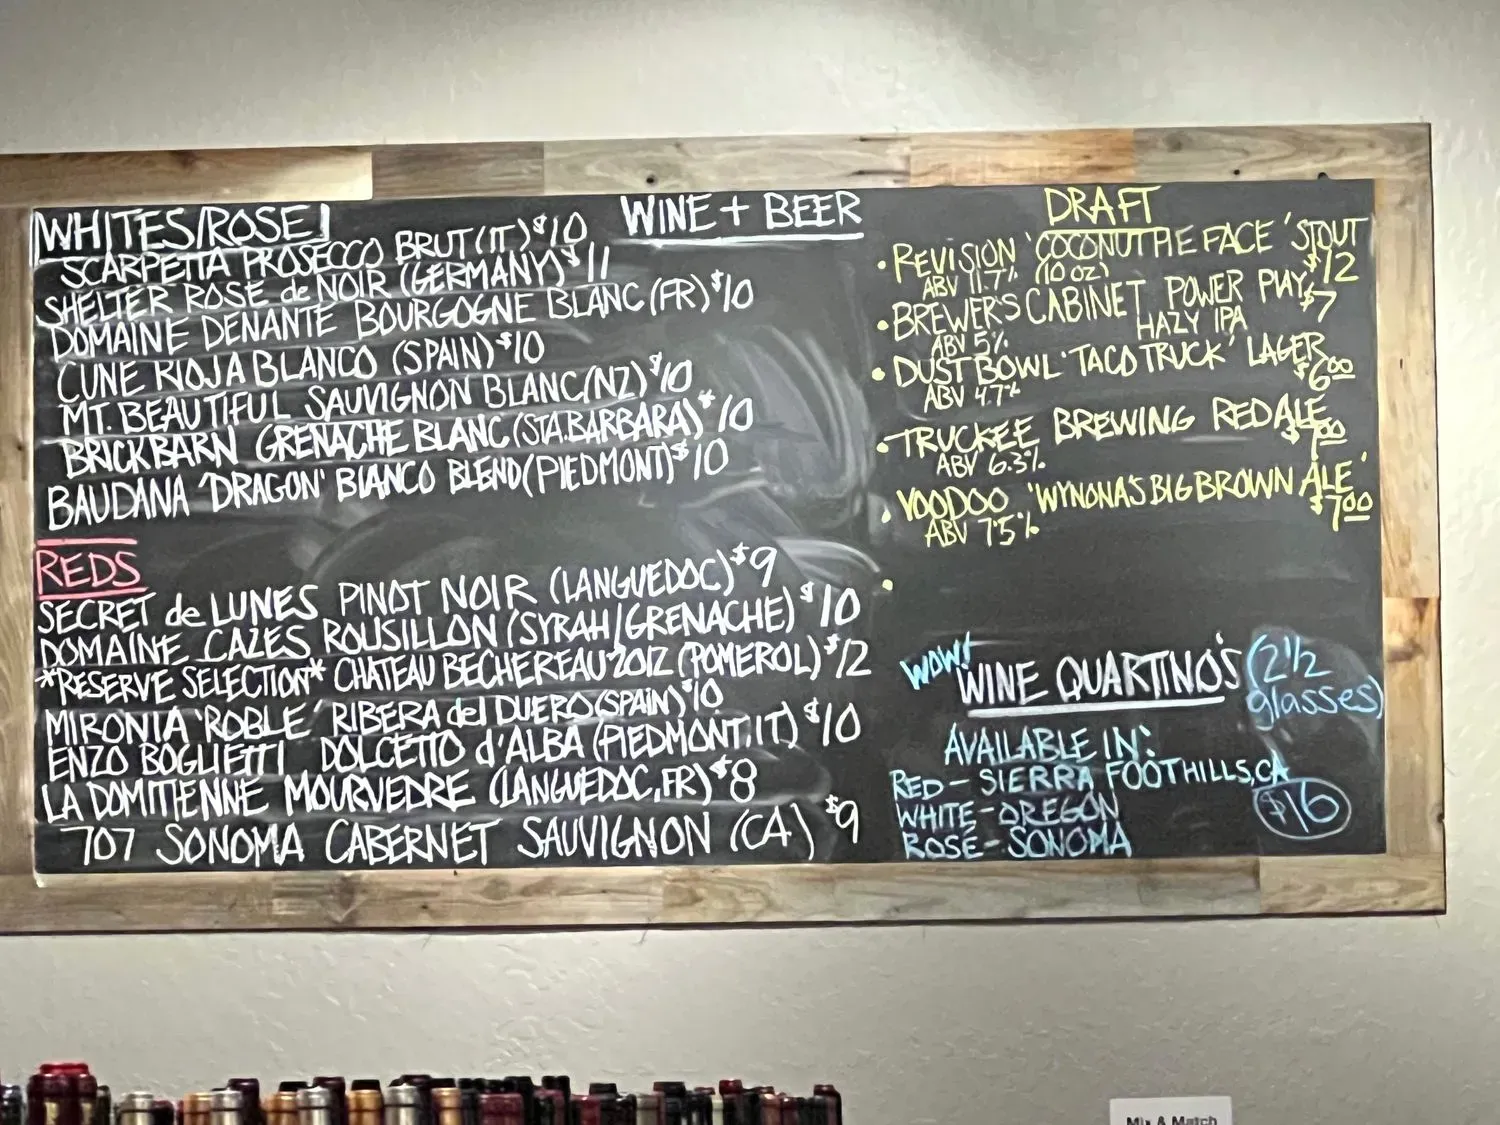 WINE + BEER
WHITES/ROSE
SCARPETTA PROSECCO BRUT (IT) $10
SHELTER ROSE de NOIR (GERMANY) $11
DOMAINE DENANTE BOURGOGNE BLANC (FR) $10
CUNE RIOJA BLANCO (SPAIN) $10
MT. BEAUTIFUL SAUVIGNON BLANC (NZ) $10
BRICKBARN GRENACHE BLANC (STA.BARBARA) $10
BAUDANA 'DRAGON' BIANCO BLEND (PIEDMONT) $10
REDS
SECRET de LUNES PINOT NOIR (LANGUEDOC) $9
DOMAINE CAZES ROUSILLON (SYRAH/GRENACHE) $10
*RESERVE SELECTION* CHATEAU BECHEREAU 2012 (POMEROL) $12
MIRONIA 'ROBLE' RIBERA del DUERO (SPAIN) $10
ENZO BOGLIETTI DOLCETTO d'ALBA (PIEDMONT, IT) $10
LA DOMITIENNE MOURVEDRE (LANGUEDOC, FR) $8
707 SONOMA CABERNET SAUVIGNON (CA) $9
DRAFT
• REVISION 'COCONUT PIE FACE' STOUT
ABV 11.7% (10 oz) $12
• BREWER'S CABINET POWER PLAY $7
ABV 5% HAZY IPA
• DUST BOWL 'TACO TRUCK' LAGER
ABV 4.7% $6.00
• TRUCKEE BREWING RED ALE
ABV 6.3% $7.00
• VOODOO 'WYNONA'S BIG BROWN ALE'
ABV 7.5% $7.00
•
WOW! WINE QUARTINO'S (2 1/2 glasses)
AVAILABLE IN:
RED - SIERRA FOOTHILLS, CA
WHITE - OREGON $16
ROSÉ - SONOMA
Mix & Match